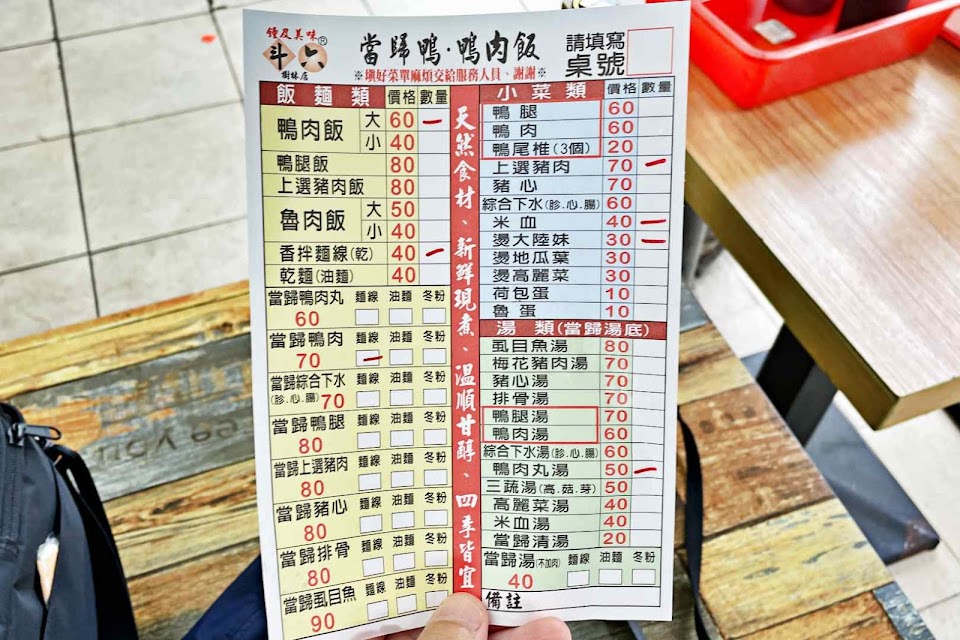 鍾皮美味
斗六
樹林店
當歸鴨·鴨肉飯
※填好菜單麻煩交給服務人員、謝謝※
請填寫
桌號
飯麵類 價格 數量
鴨肉飯 大 60
小 40
鴨腿飯 80
上選豬肉飯 80
魯肉飯 大 50
小 40
香拌麵線(乾) 40
乾麵(油麵) 40
當歸鴨肉丸 麵線 油麵 冬粉
60
當歸鴨肉 麵線 油麵 冬粉
70
當歸綜合下水 麵線 油麵 冬粉
(胗.心.腸) 70
當歸鴨腿 麵線 油麵 冬粉
80
當歸上選豬肉 麵線 油麵 冬粉
80
當歸豬心 麵線 油麵 冬粉
80
當歸排骨 麵線 油麵 冬粉
80
當歸虱目魚 麵線 油麵 冬粉
90
天然食材、新鮮現煮、溫順甘醇、四季皆宜
小菜類 價格 數量
鴨腿 60
鴨肉 60
鴨尾椎(3個) 20
上選豬肉 70
豬心 70
綜合下水(胗.心.腸) 60
米血 40
燙大陸妹 30
燙地瓜葉 30
燙高麗菜 30
荷包蛋 10
魯蛋 10
湯類(當歸湯底)
虱目魚湯 80
梅花豬肉湯 70
豬心湯 70
排骨湯 70
鴨腿湯 70
鴨肉湯 60
綜合下水湯(胗.心.腸) 60
鴨肉丸湯 50
三蔬湯(高.菇.芽) 50
高麗菜湯 40
米血湯 40
當歸清湯 20
當歸湯(不加肉) 麵線 油麵 冬粉
40
備註